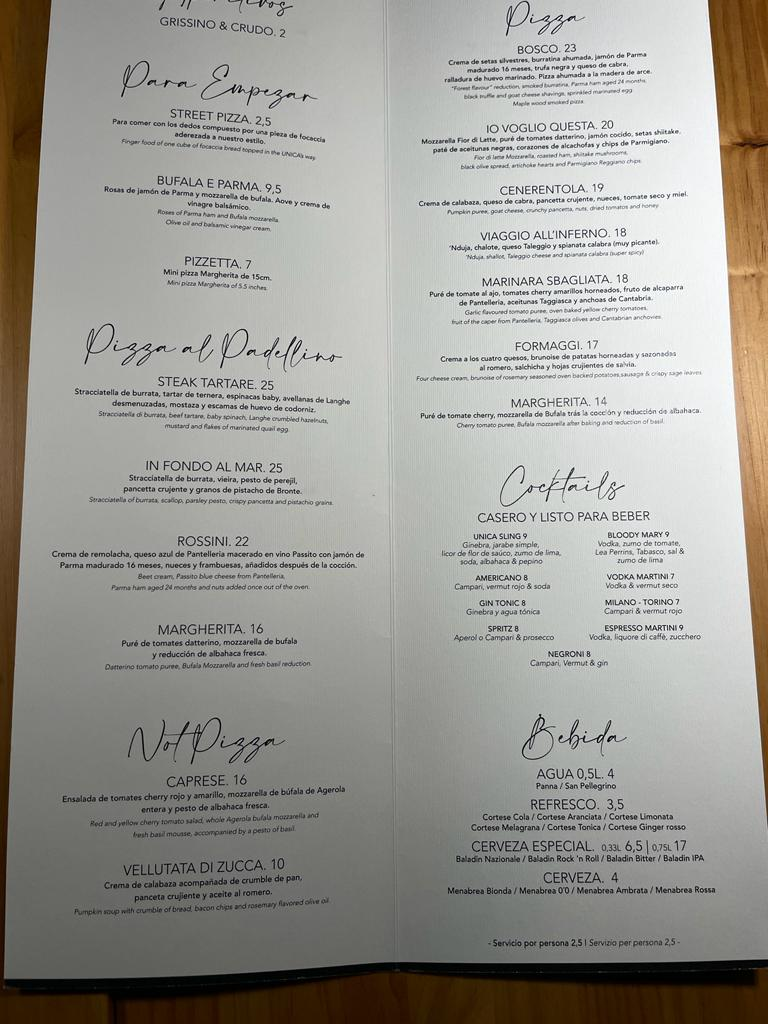 GRISSINO & CRUDO. 2
Para Empezar
STREET PIZZA. 2,5
Para comer con los dedos compuesto por una pieza de focaccia
aderezada a nuestro estilo.
Finger food of one cube of focaccia bread topped in the UNICA's way.
BUFALA E PARMA. 9,5
Rosas de jamón de Parma y mozzarella de bufala. Aove y crema de
vinagre balsámico.
Roses of Parma ham and Bufala mozzarella.
Olive oil and balsamic vinegar cream.
PIZZETTA. 7
Mini pizza Margherita de 15cm.
Mini pizza Margherita of 5.5 inches.
Pizza al Padellino
STEAK TARTARE. 25
Stracciatella de burrata, tartar de ternera, espinacas baby, avellanas de Langhe
desmenuzadas, mostaza y escamas de huevo de codorniz.
Stracciatella di burrata, beef tartare, baby spinach, Langhe crumbled hazelnuts,
mustard and flakes of marinated quail egg.
IN FONDO AL MAR. 25
Stracciatella de burrata, vieira, pesto de perejil,
pancetta crujente y granos de pistacho de Bronte.
Stracciatella of burrata, scallop, parsley pesto, crispy pancetta and pistachio grains.
ROSSINI. 22
Crema de remolacha, queso azul de Pantelleria macerado en vino Passito con jamón de
Parma madurado 16 meses, nueces y frambuesas, añadidos después de la cocción.
Beet cream, Passito blue cheese from Pantelleria,
Parma ham aged 24 months and nuts added once out of the oven.
MARGHERITA. 16
Puré de tomates datterino, mozzarella de bufala
y reducción de albahaca fresca.
Datterino tomato puree, Bufala Mozzarella and fresh basil reduction.
Not Pizza
CAPRESE. 16
Ensalada de tomates cherry rojo y amarillo, mozzarella de búfala de Agerola
entera y pesto de albahaca fresca.
Red and yellow cherry tomato salad, whole Agerola bufala mozzarella and
fresh basil mousse, accompanied by a pesto of basil.
VELLUTATA DI ZUCCA. 10
Crema de calabaza acompañada de crumble de pan,
panceta crujiente y aceite al romero.
Pumpkin soup with crumble of bread, bacon chips and rosemary flavored olive oil.
Pizza
BOSCO. 23
Crema de setas silvestres, burratina ahumada, jamón de Parma
madurado 16 meses, trufa negra y queso de cabra,
ralladura de huevo marinado. Pizza ahumada a la madera de arce.
"Forest flavour" reduction, smoked burratina, Parma ham aged 24 months,
black truffle and goat cheese shavings, sprinkled marinated egg.
Maple wood smoked pizza.
IO VOGLIO QUESTA. 20
Mozzarella Fior di Latte, puré de tomates datterino, jamón cocido, setas shiitake,
paté de aceitunas negras, corazones de alcachofas y chips de Parmigiano.
Fior di latte Mozzarella, roasted ham, shiitake mushrooms,
black olive spread, artichoke hearts and Parmigiano Reggiano chips.
CENERENTOLA. 19
Crema de calabaza, queso de cabra, pancetta crujente, nueces, tomate seco y miel.
Pumpkin puree, goat cheese, crunchy pancetta, nuts, dried tomatoes and honey
VIAGGIO ALL'INFERNO. 18
'Nduja, chalote, queso Taleggio y spianata calabra (muy picante).
'Nduja, shallot, Taleggio cheese and spianata calabra (super spicy)
MARINARA SBAGLIATA. 18
Puré de tomate al ajo, tomates cherry amarillos horneados, fruto de alcaparra
de Pantelleria, aceitunas Taggiasca y anchoas de Cantabria.
Garlic flavoured tomato puree, oven baked yellow cherry tomatoes,
fruit of the caper from Pantelleria, Taggiasca olives and Cantabrian anchovies.
FORMAGGI. 17
Crema a los cuatro quesos, brunoise de patatas horneadas y sazonadas
al romero, salchicha y hojas crujientes de salvia.
Four cheese cream, brunoise of rosemary seasoned oven backed potatoes,sausage & crispy sage leaves.
MARGHERITA. 14
Puré de tomate cherry, mozzarella de Bufala trás la cocción y reducción de albahaca.
Cherry tomato puree, Bufala mozzarella after baking and reduction of basil.
Cocktails
CASERO Y LISTO PARA BEBER
UNICA SLING 9
Ginebra, jarabe simple,
licor de flor de saúco, zumo de lima,
soda, albahaca & pepino
BLOODY MARY 9
Vodka, zumo de tomate,
Lea Perrins, Tabasco, sal &
zumo de lima
AMERICANO 8
Campari, vermut rojo & soda
VODKA MARTINI 7
Vodka & vermut seco
GIN TONIC 8
Ginebra y agua tónica
MILANO - TORINO 7
Campari & vermut rojo
SPRITZ 8
Aperol o Campari & prosecco
ESPRESSO MARTINI 9
Vodka, liquore di caffè, zucchero
NEGRONI 8
Campari, Vermut & gin
Bebida
AGUA 0,5L. 4
Panna / San Pellegrino
REFRESCO. 3,5
Cortese Cola / Cortese Aranciata / Cortese Limonata
Cortese Melagrana / Cortese Tonica / Cortese Ginger rosso
CERVEZA ESPECIAL. 0,33L 6,5 | 0,75L 17
Baladin Nazionale / Baladin Rock 'n Roll / Baladin Bitter / Baladin IPA
CERVEZA. 4
Menabrea Bionda / Menabrea 0'0 / Menabrea Ambrata / Menabrea Rossa
- Servicio por persona 2,5 | Servizio per persona 2,5 -